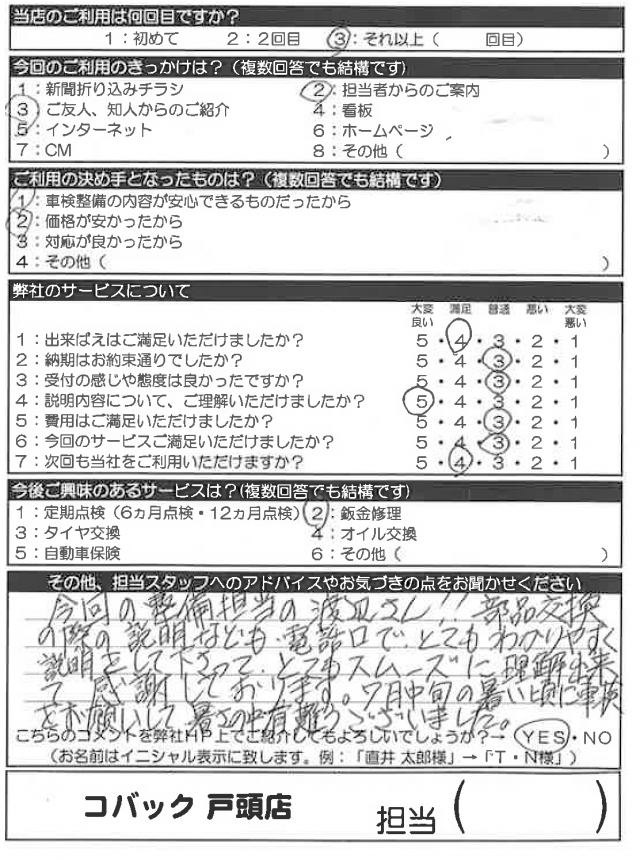 当店のご利用は何回目ですか？
1：初めて　2：2回目　3：それ以上（　　回目）
今回のご利用のきっかけは？（複数回答でも結構です）
1：新聞折り込みチラシ　2：担当者からのご案内
3：ご友人、知人からのご紹介　4：看板
5：インターネット　6：ホームページ
7：CM　8：その他（　　）
ご利用の決め手となったものは？（複数回答でも結構です）
1：車検整備の内容が安心できるものだったから
2：価格が安かったから
3：対応が良かったから
4：その他（　　）
弊社のサービスについて
大変良い　満足　普通　悪い　大変悪い
1：出来ばえはご満足いただけましたか？　5・4・3・2・1
2：納期はお約束通りでしたか？　5・4・3・2・1
3：受付の感じや態度は良かったですか？　5・4・3・2・1
4：説明内容について、ご理解いただけましたか？　5・4・3・2・1
5：費用はご満足いただけましたか？　5・4・3・2・1
6：今回のサービスご満足いただけましたか？　5・4・3・2・1
7：次回も当社をご利用いただけますか？　5・4・3・2・1
今後ご興味のあるサービスは？(複数回答でも結構です)
1：定期点検（6ヵ月点検・12ヵ月点検）　2：鈑金修理
3：タイヤ交換　4：オイル交換
5：自動車保険　6：その他（　　）
その他、担当スタッフへのアドバイスやお気づきの点をお聞かせください
今回の整備担当の渡辺さん!! 部品交換
の際の説明なども、電話口で、とてもわかりやすく
説明をして下さって、とてもスムーズに理解出来
て感謝しております。7月中旬の暑い頃に車検
をお願いして、暑さの中有難うございました。
こちらのコメントを弊社HP上でご紹介してもよろしいでしょうか？→　YES・NO
（お名前はイニシャル表示に致します。例：「直井 太郎様」→「T・N様」）
コバック 戸頭店　担当（　　）